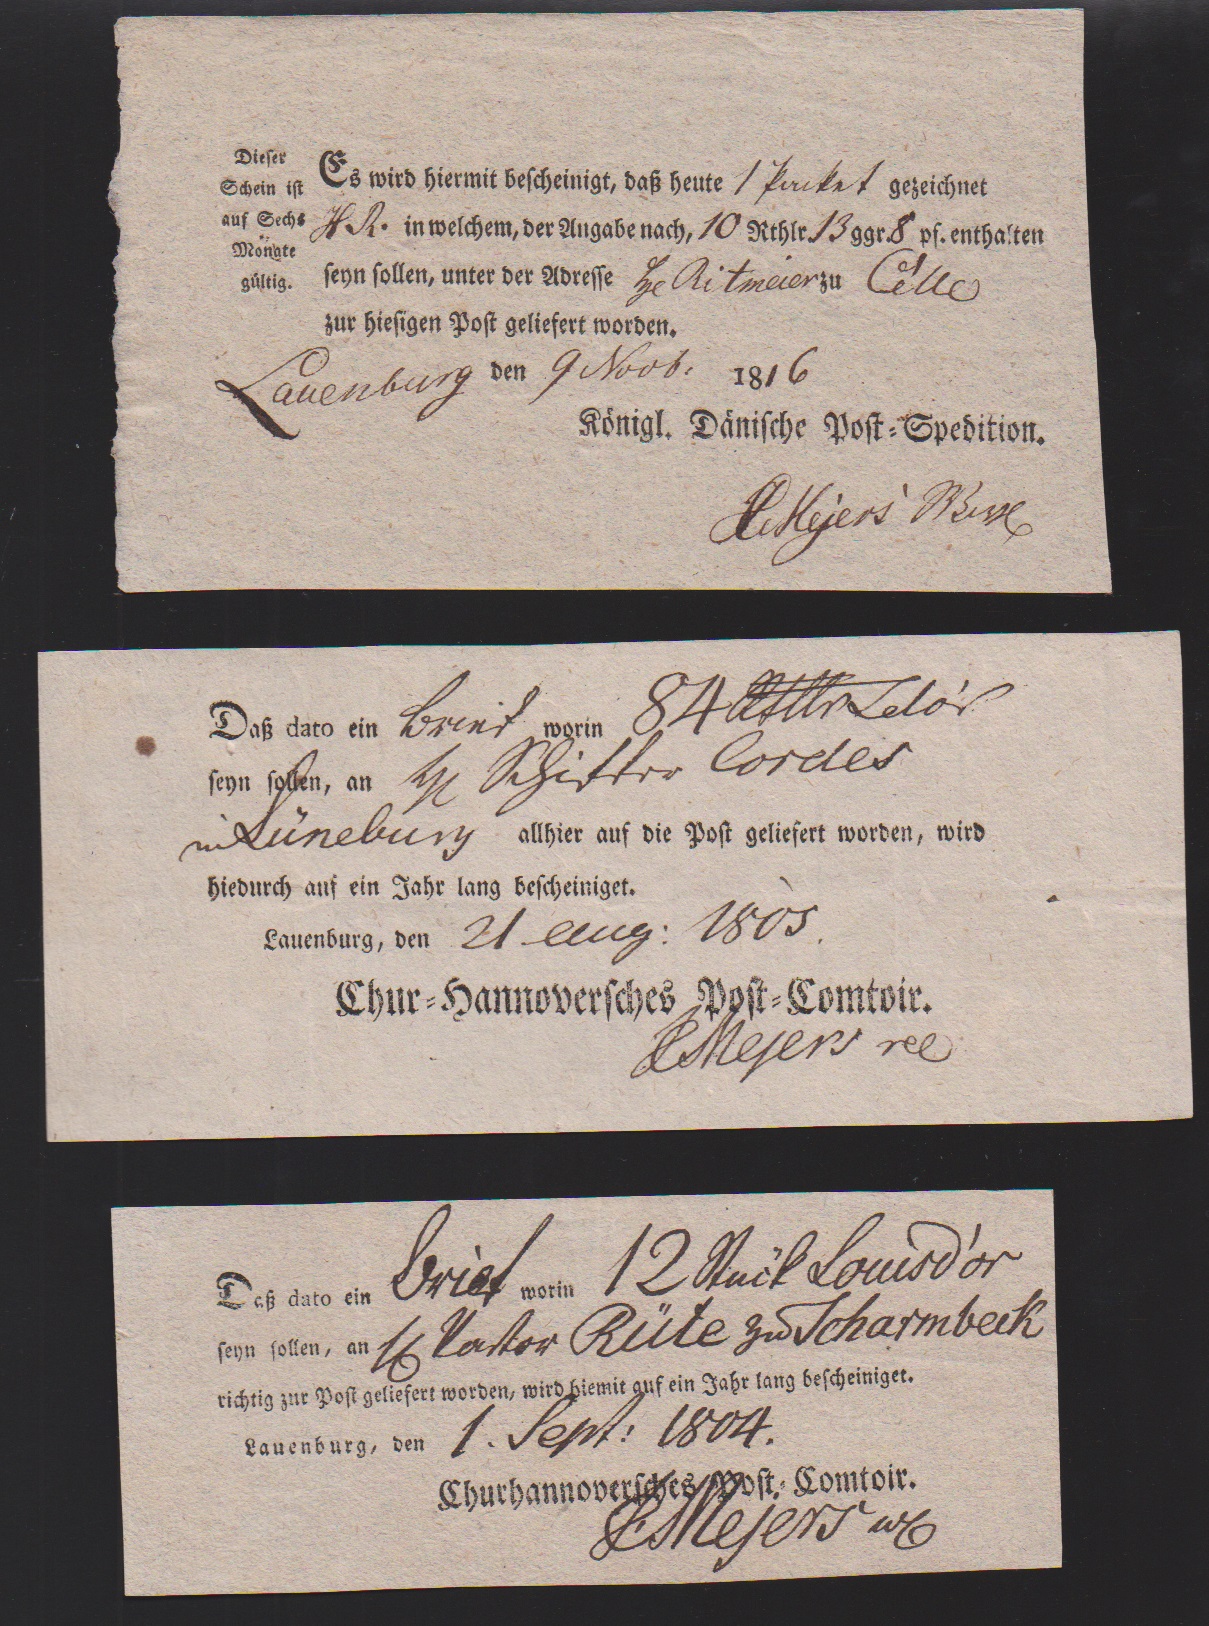 Dieser
Schein ist
auf Sechs
Monate
gültig.
Es wird hiermit bescheinigt, daß heute 1 Packet gezeichnet
H R. in welchem, der Angabe nach, 10 Rthlr. 13 ggr. 8 pf. enthalten
seyn sollen, unter der Adresse Ritmeier zu Celle
zur hiesigen Post geliefert worden.
Lauenburg den 9 Novb. 1816
Königl. Dänische Post-Spedition.
Meyers
Daß dato ein Brief worin 84 Ldór
seyn sollen, an Schiffer Cordes
in Lüneburg allhier auf die Post geliefert worden, wird
hiedurch auf ein Jahr lang bescheiniget.
Lauenburg, den 21 Aug: 1805.
Chur-Hannoversches Post-Comtoir.
Meyers
Daß dato ein Brief worin 12 Stück Louisd'or
seyn sollen, an Pastor Rüte zu Scharmbeck
richtig zur Post geliefert worden, wird hiemit auf ein Jahr lang bescheiniget.
Lauenburg, den 1. Sept: 1804.
Churhannoversches Post-Comtoir.
Meyers